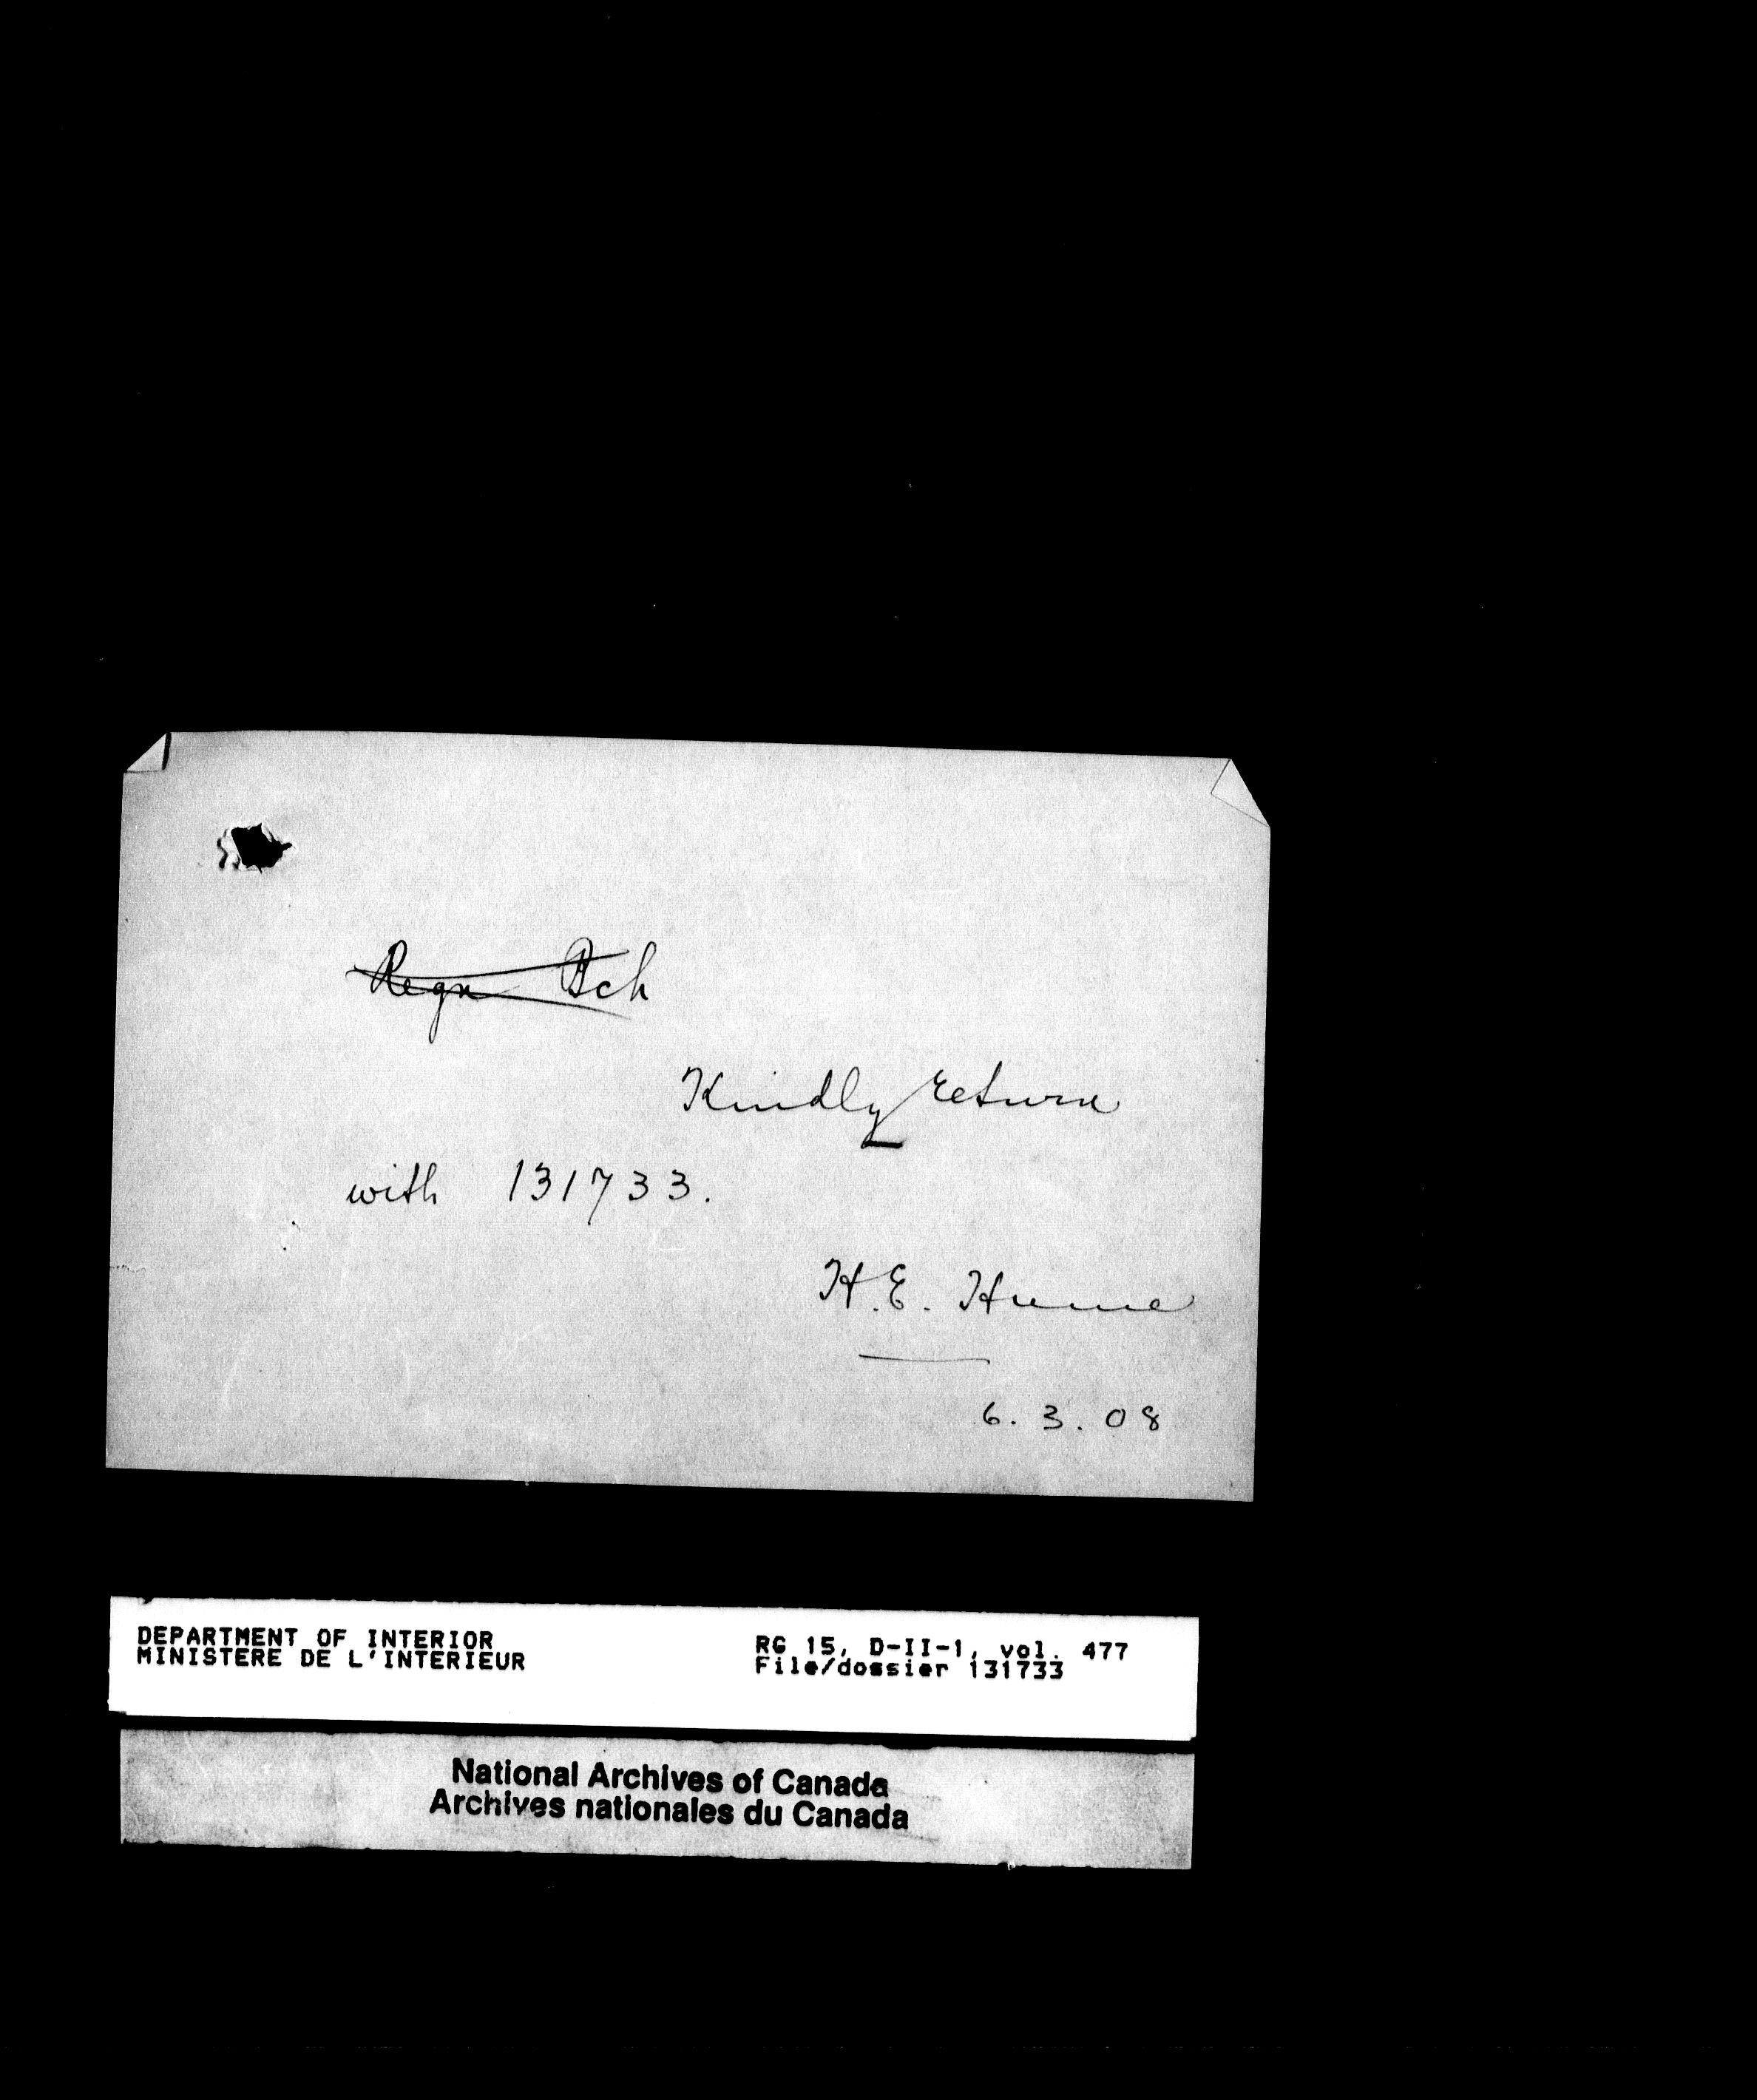 Regn Bch
Kindly return
with 131733.
H.E. Hume
6.3.08
DEPARTMENT OF INTERIOR
MINISTERE DE L'INTERIEUR
RG 15, D-II-1, vol. 477
File/dossier 131733
National Archives of Canada
Archives nationales du Canada